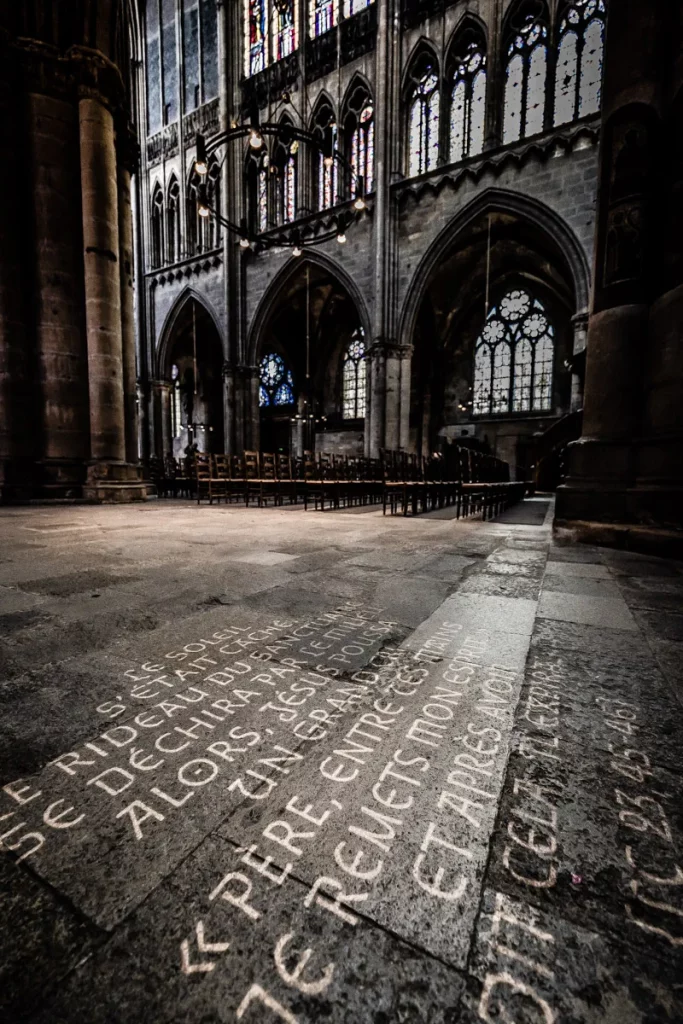 LE SOLEIL
S'ÉTAIT CACHÉ.
LE RIDEAU DU SANCTUAIRE
SE DÉCHIRA PAR LE MILIEU
ALORS, JÉSUS POUSSA
UN GRAND CRI
« PÈRE, ENTRE TES MAINS
JE REMETS MON ESPRIT
ET APRÈS AVOIR
DIT CELA IL EXPIRA
LC 23 45-46